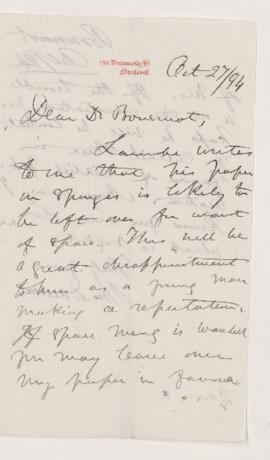 University St
Montreal.
Oct 27/94
Dear Dr Bourinot,
Lambe writes
to me that his paper
on sponges is likely to
be left over for want
of space. This will be
a great disappointment
to him as a young man
making a reputation.
If space is wanted
you may leave over
my paper in favour